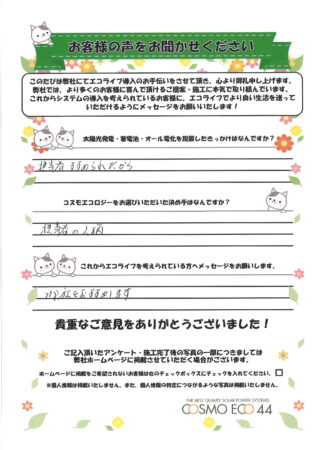 お客様の声をお聞かせください
このたびは弊社にてエコライフ導入のお手伝いをさせて頂き、心より御礼申し上げます。
弊社では、より多くのお客様に喜んで頂けるご提案・施工に本気で取り組んでいます。
これからシステムの導入を考えられているお客様に、エコライフでより良い生活を送って
いただけるようにメッセージをお願いいたします！
太陽光発電・蓄電池・オール電化を設置したきっかけはなんですか？
担当者 すすめられたから
コスモエコロジーをお選びいただいた決め手はなんですか？
担当者の人柄
これからエコライフを考えられている方へメッセージをお願いします。
をおすすめします
貴重なご意見をありがとうございました！
ご記入頂いたアンケート・施工完了後の写真の一部につきましては
弊社ホームページに掲載させていただく場合がございます。
ホームページに掲載をご希望されないお客様は右のチェックボックスにチェックを入れてください。
※個人情報は掲載いたしません、また、個人情報の特定につながるような写真は掲載いたしません。
THE BEST QUALITY SOLAR POWER SYSTEMS
COSMO ECO 44